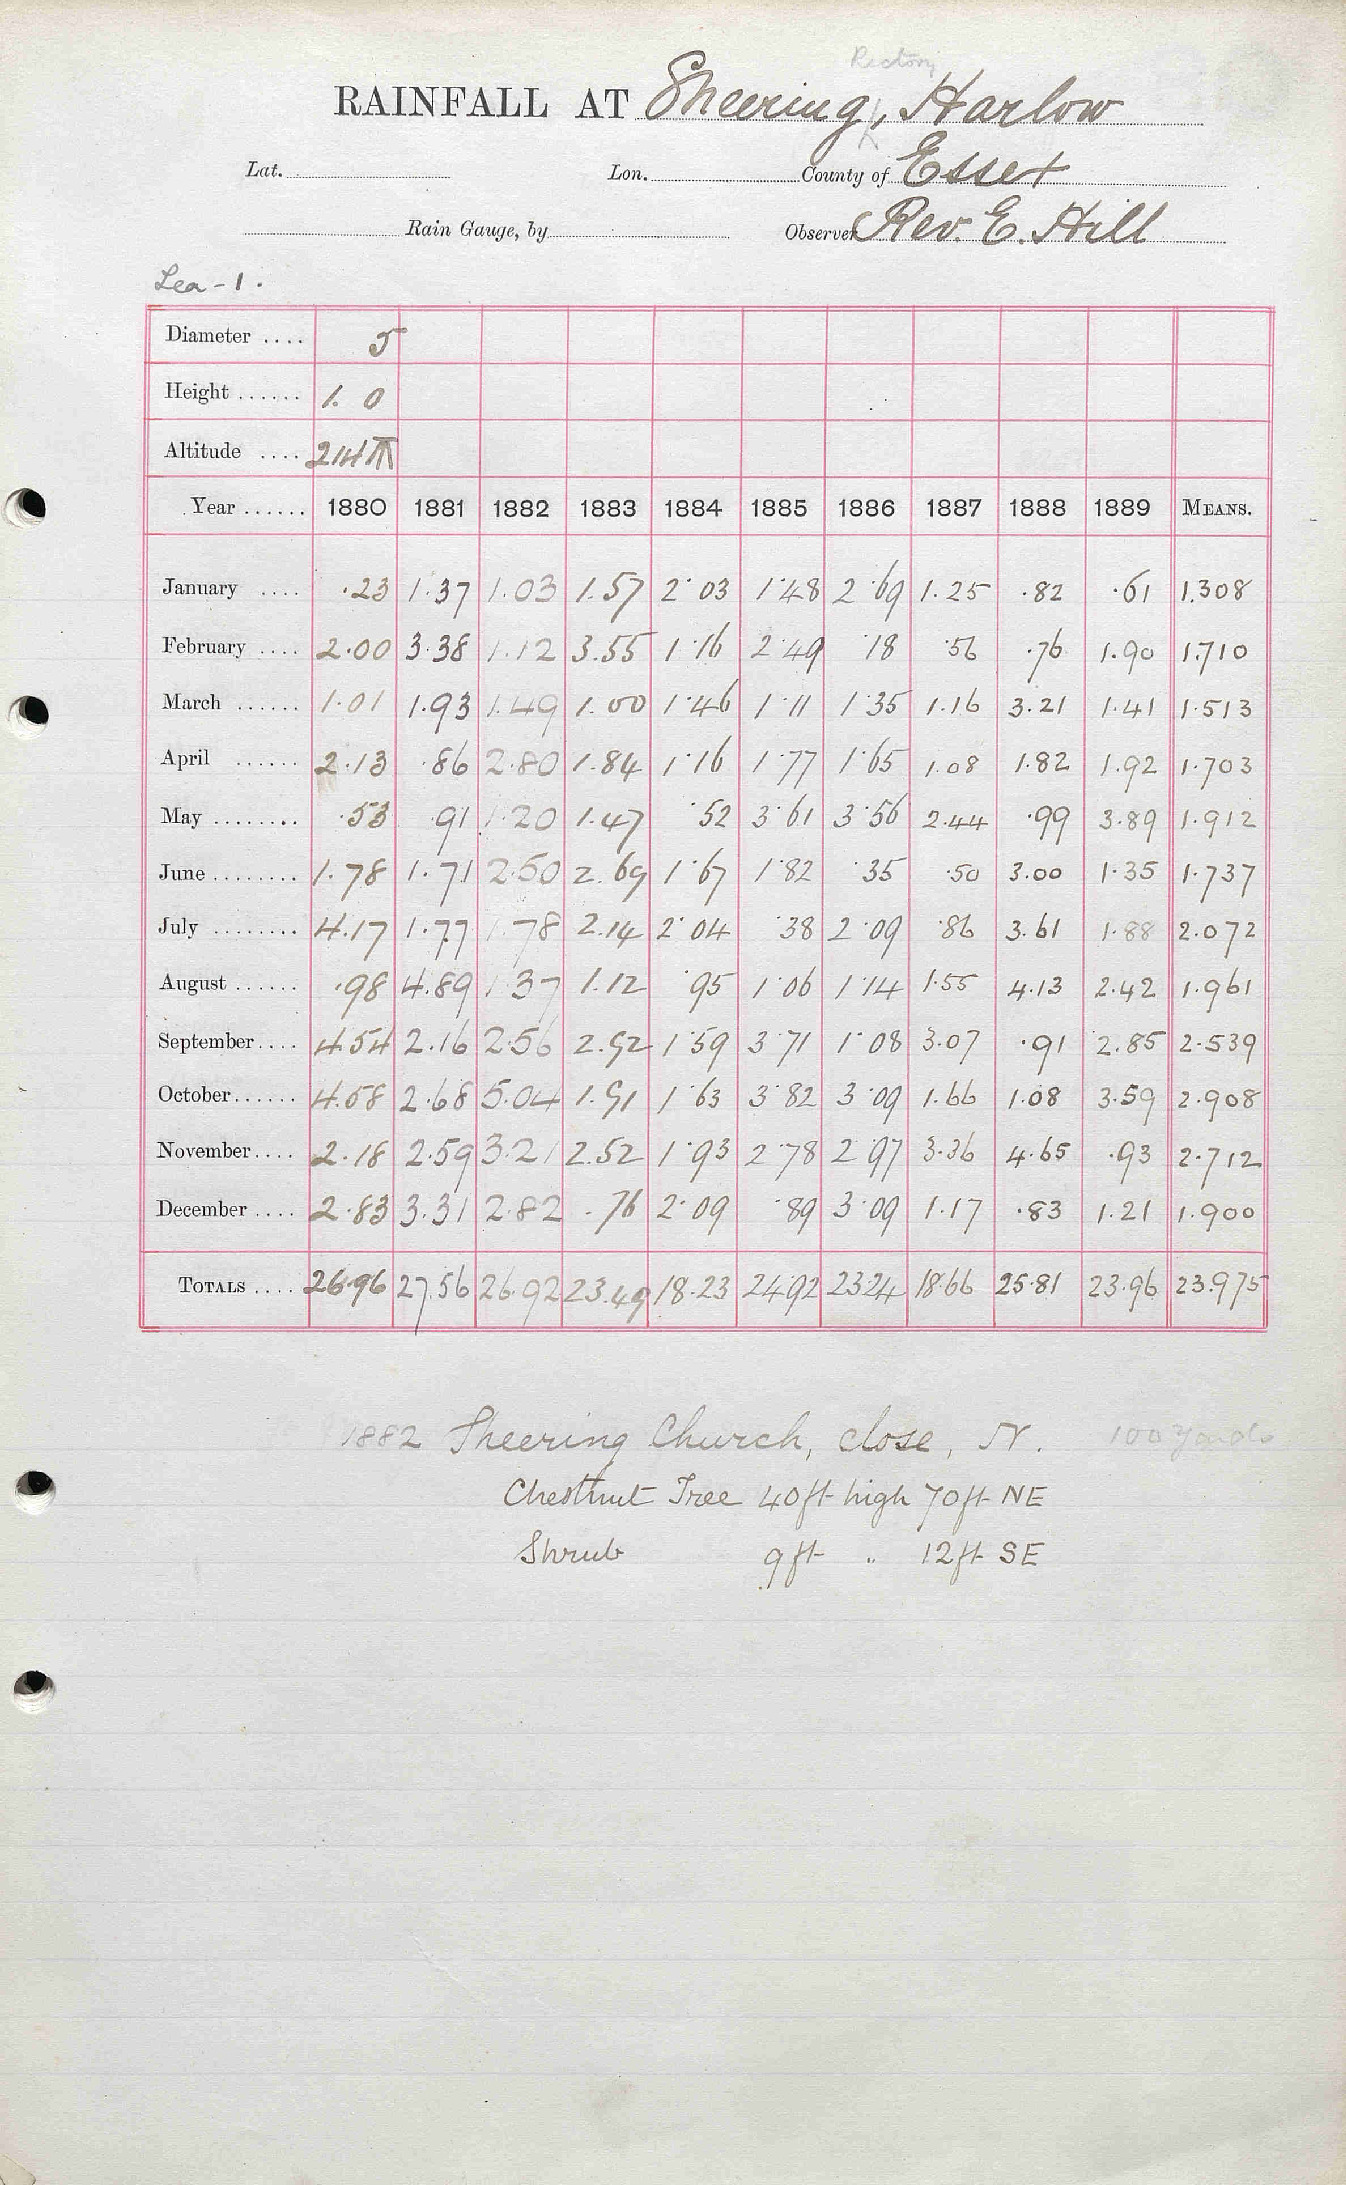 Rectory
RAINFALL AT Sheering, Harlow
Lat. Lon. County of Essex
Rain Gauge, by Observer Rev. E. Hill
Lea - 1.
Diameter .... 5
Height ...... 1. 0
Altitude ....
Year ...... 1880 1881 1882 1883 1884 1885 1886 1887 1888 1889 MEANS.
January .... .23 1.37 1.03 1.57 2.03 1.48 2.69 1.25 .82 .61 1.308
February .... 2.00 3.38 1.12 3.55 1.16 2.49 .18 .56 .76 1.90 1.710
March ...... 1.01 1.93 1.49 1.00 1.46 1.11 1.35 1.16 3.21 1.41 1.513
April ...... 2.13 .86 2.80 1.84 1.16 1.77 1.65 1.08 1.82 1.92 1.703
May ........ .53 .91 1.20 1.47 .52 3.61 3.56 2.44 .99 3.89 1.912
June ........ 1.78 1.71 2.50 2.69 1.67 1.82 .35 .50 3.00 1.35 1.737
July ........ 4.17 1.77 1.78 2.14 2.04 .38 2.09 .86 3.61 1.88 2.072
August ...... .98 4.89 1.37 1.12 .95 1.06 1.14 1.55 4.13 2.42 1.961
September .... 4.54 2.16 2.56 2.92 1.59 3.71 1.08 3.07 .91 2.85 2.539
October ...... 4.58 2.68 5.04 1.91 1.63 3.82 3.09 1.66 1.08 3.59 2.908
November .... 2.18 2.59 3.21 2.52 1.93 2.78 2.97 3.36 4.65 .93 2.712
December .... 2.83 3.31 2.82 .76 2.09 .89 3.09 1.17 .83 1.21 1.900
TOTALS .... 26.96 27.56 26.92 23.49 18.23 24.92 23.24 18.66 25.81 23.96 23.975
1882 Sheering Church, close, N. 100 yards
Chestnut Tree 40ft high 70ft NE
Shrub 9ft " 12ft SE